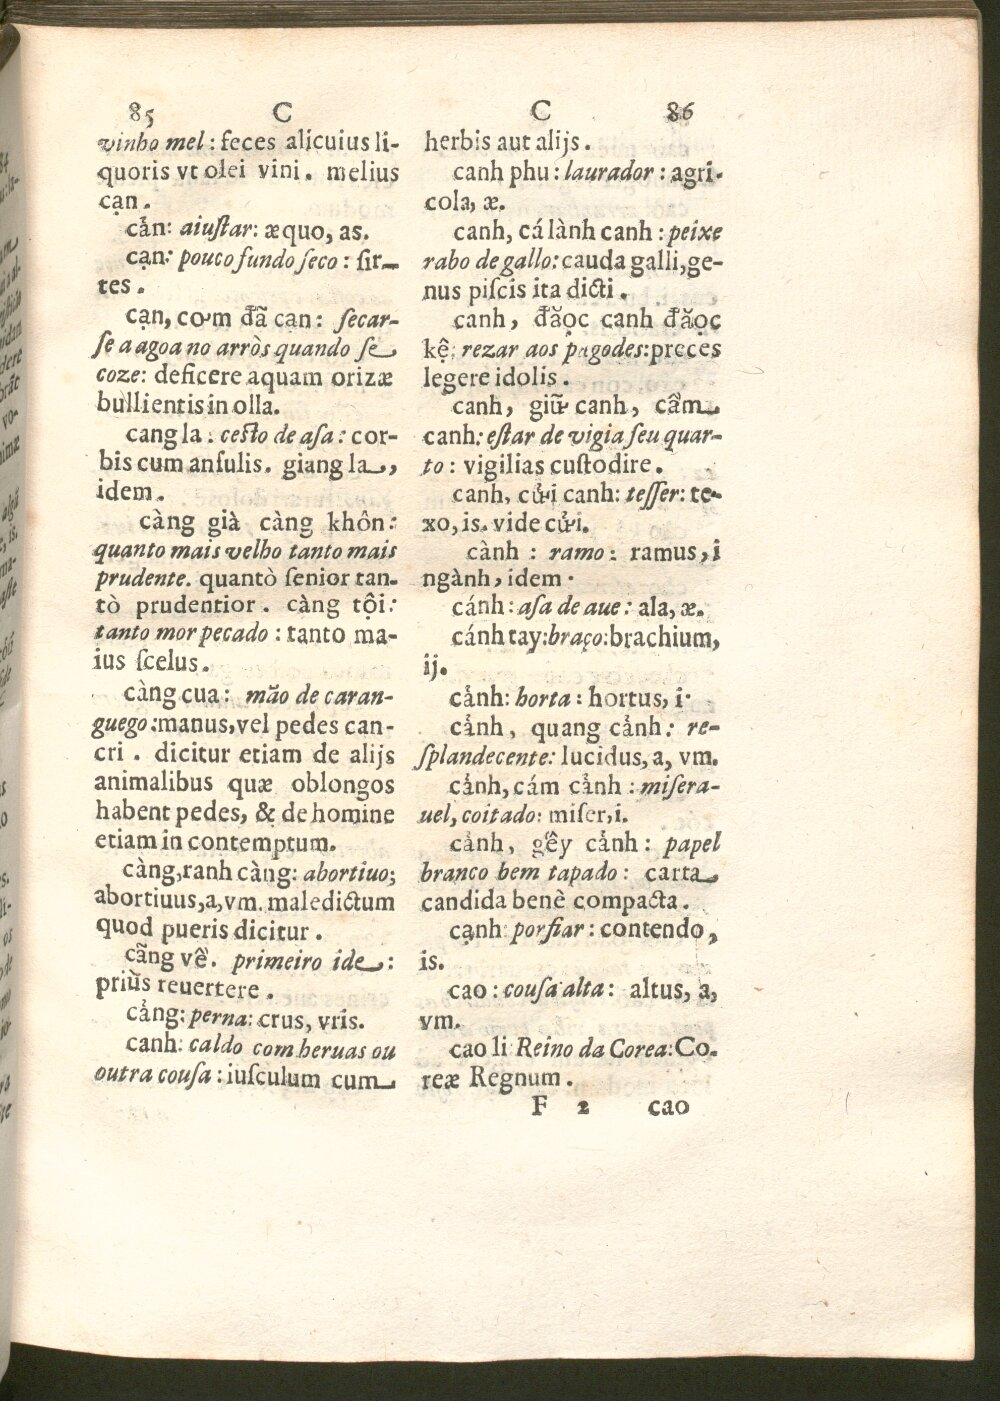 85 C
vinho mel : feces alicuius li-
quoris vt olei vini . melius
cạn .
cẩn : aiuſtar : æquo, as.
cạn : pouco fundo ſeco : ſir-
tes .
cạn, cơm đã cạn : ſecar-
ſe a agoa no arròs quando ſe
coze : deficere aquam orizæ
bullientis in olla.
cang la : ceſto de aſa : cor-
bis cum anſulis . giang la ,
idem .
càng già càng khôn :
quanto mais velho tanto mais
prudente . quantò ſenior tan-
tò prudentior . càng tội :
tanto mor pecado : tanto ma-
ius ſcelus .
càng cua : mão de caran-
guego : manus, vel pedes can-
cri . dicitur etiam de alijs
animalibus quæ oblongos
habent pedes, & de homine
etiam in contemptum.
càng, ranh càng : abortiuo ;
abortiuus, a, vm. maledictum
quod pueris dicitur .
cãng về . primeiro ide :
priùs reuertere .
cẳng : perna : crus, vris.
canh : caldo com heruas ou
outra couſa : iuſculum cum
C 86
herbis aut alijs .
canh phu : laurador : agri-
cola, æ.
canh, cá lành canh : peixe
rabo de gallo : cauda galli, ge-
nus piſcis ita dicti .
canh, đăọc canh đăọc
kệ : rezar aos pagodes : preces
legere idolis .
canh, giữ canh, cầm
canh : eſtar de vigia ſeu quar-
to : vigilias cuſtodire .
canh, cửi canh : teſſer : te-
xo, is. vide cửi.
cành : ramo : ramus, i
ngành, idem .
cánh : aſa de aue : ala, æ.
cánh tay : braço : brachium,
ij.
cảnh : horta : hortus, i .
cảnh, quang cảnh : re-
ſplandecente : lucidus, a, vm.
cảnh, cám cảnh : miſera-
uel, coitado : miſer, i.
cảnh, gêy cảnh : papel
branco bem tapado : carta
candida benè compacta .
cạnh : porfiar : contendo ,
is.
cao : couſa alta : altus, a,
vm.
cao li Reino da Corea : Co-
reæ Regnum .
F 2 cao